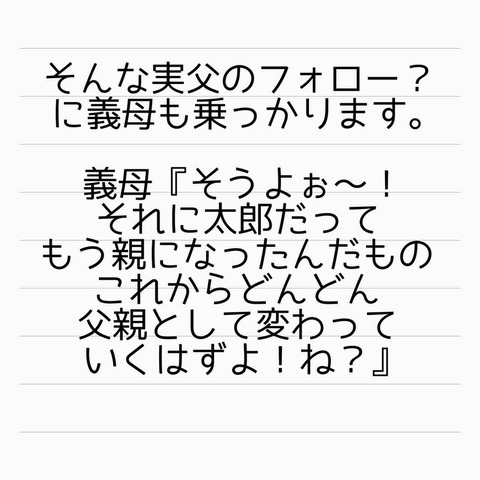 そんな実父のフォロー？
に義母も乗っかります。
義母『そうよぉ〜！
それに太郎だって
もう親になったんだもの
これからどんどん
父親として変わって
いくはずよ！ね？』